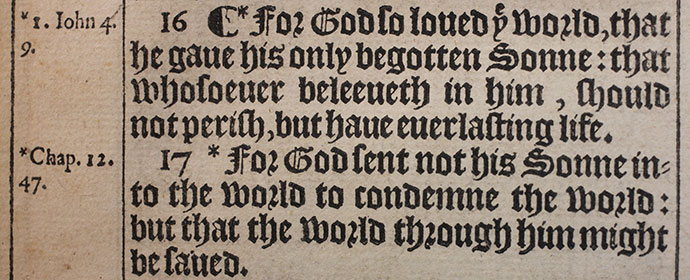 *1. Iohn 4.
9.
16 ¶ *For God ſo loued yͤ world, that
he gaue his only begotten Sonne: that
whoſoeuer beleeueth in him, ſhould
not periſh, but haue euerlaſting life.
*Chap. 12.
47.
17 *For God ſent not his Sonne in⸗
to the world to condemne the world:
but that the world through him might
be ſaued.